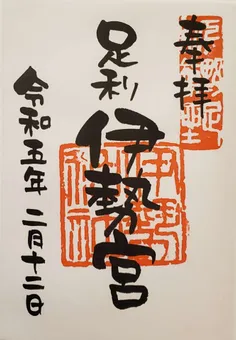 奉拝
足利
伊勢宮
令和五年二月十二日